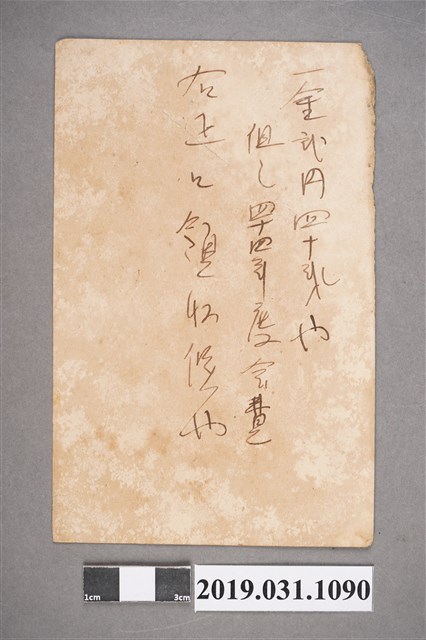 一金弐円四十銭也
但し四十四年度会費
右正ニ領収候也
1cm
3cm
2019.031.1090